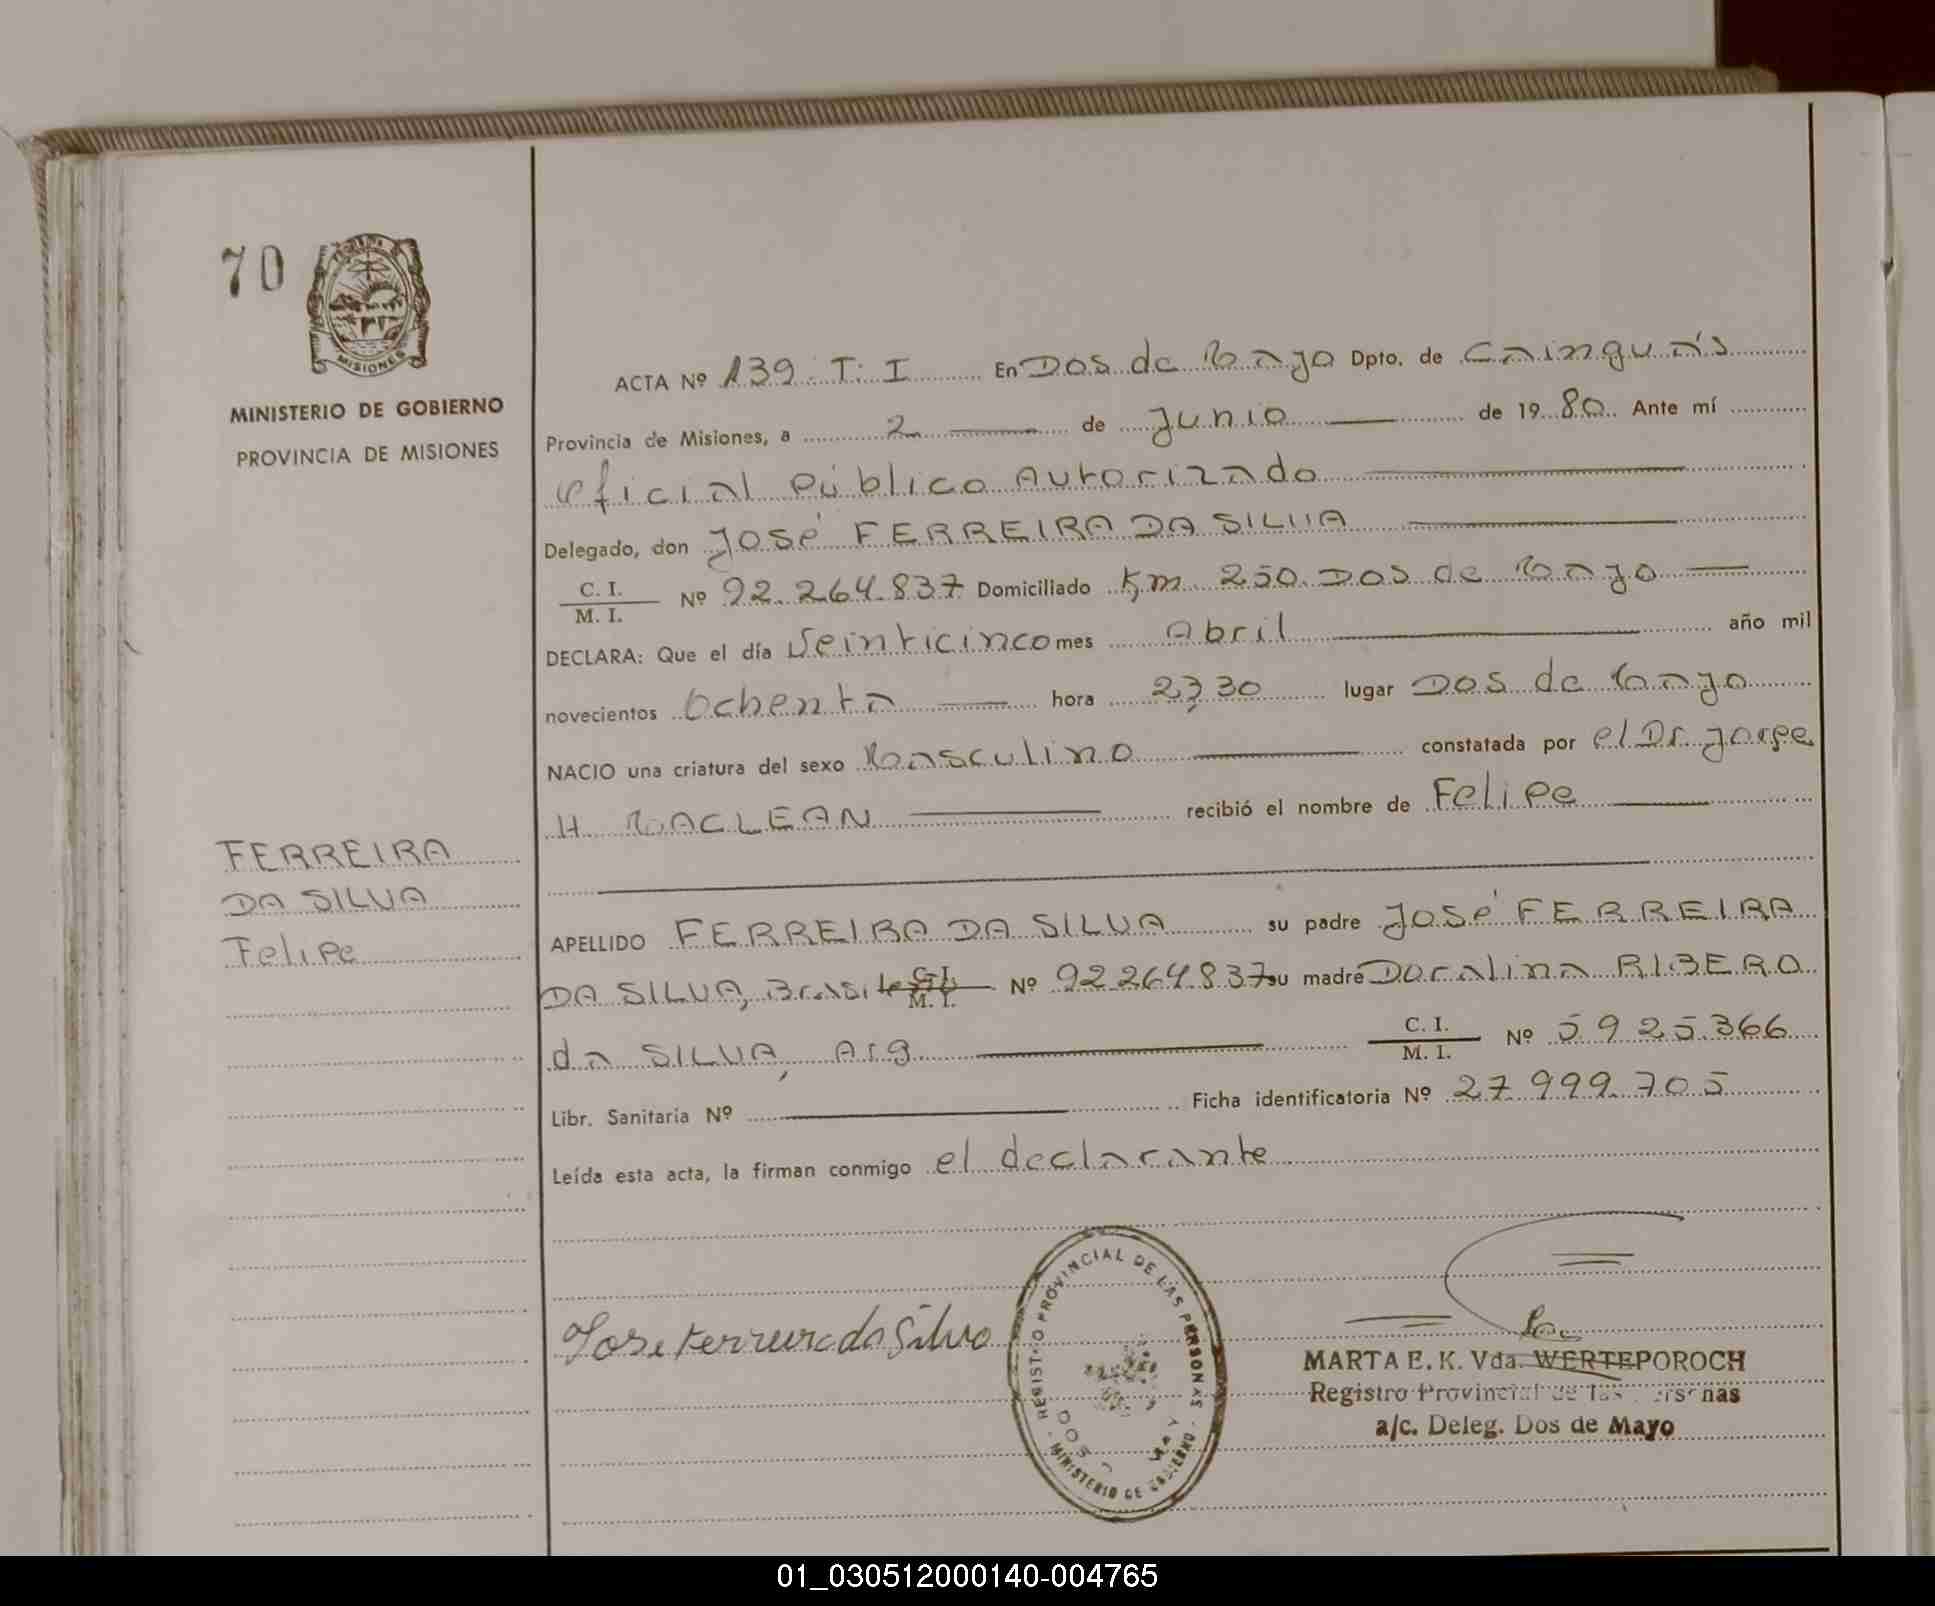 70
MISIONES
MINISTERIO DE GOBIERNO
PROVINCIA DE MISIONES
FERREIRA
DA SILVA
Felipe
ACTA Nº 139 T. I En Dos de Mayo Dpto. de Cainguás
Provincia de Misiones, a 2 de Junio de 1980 Ante mí
Oficial Público Autorizado
Delegado, don José FERREIRA DA SILVA
C. I.
M. I. Nº 92.264.837 Domiciliado Km 250 Dos de Mayo
DECLARA: Que el día Veinticinco mes Abril año mil
novecientos Ochenta hora lugar Dos de Mayo
NACIO una criatura del sexo Masculino constatada por el Dr. Jorge
H. MACLEAN recibió el nombre de Felipe
APELLIDO FERREIRA DA SILVA su padre José FERREIRA
DA SILVA, C. I. M. I. Nº 92.264.837 su madre Doralina RIBERO
da SILVA, Arg C. I. M. I. Nº 5.925.366
Libr. Sanitaria Nº Ficha identificatoria Nº 27.999.705
Leída esta acta, la firman conmigo el declarante
Jose Ferreira da Silva
REGISTRO PROVINCIAL DE LAS PERSONAS
DOS MAYO
MINISTERIO DE GOBIERNO
MARTA E. K. Vda. WERTEPOROCH
Registro Provincial de las Personas
a/c. Deleg. Dos de Mayo
01_030512000140-004765